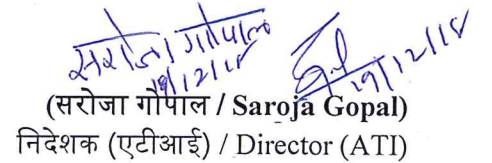 सरोजा गोपाल
19/12/18 19/12/18
(सरोजा गौपाल / Saroja Gopal)
निदेशक (एटीआई) / Director (ATI)